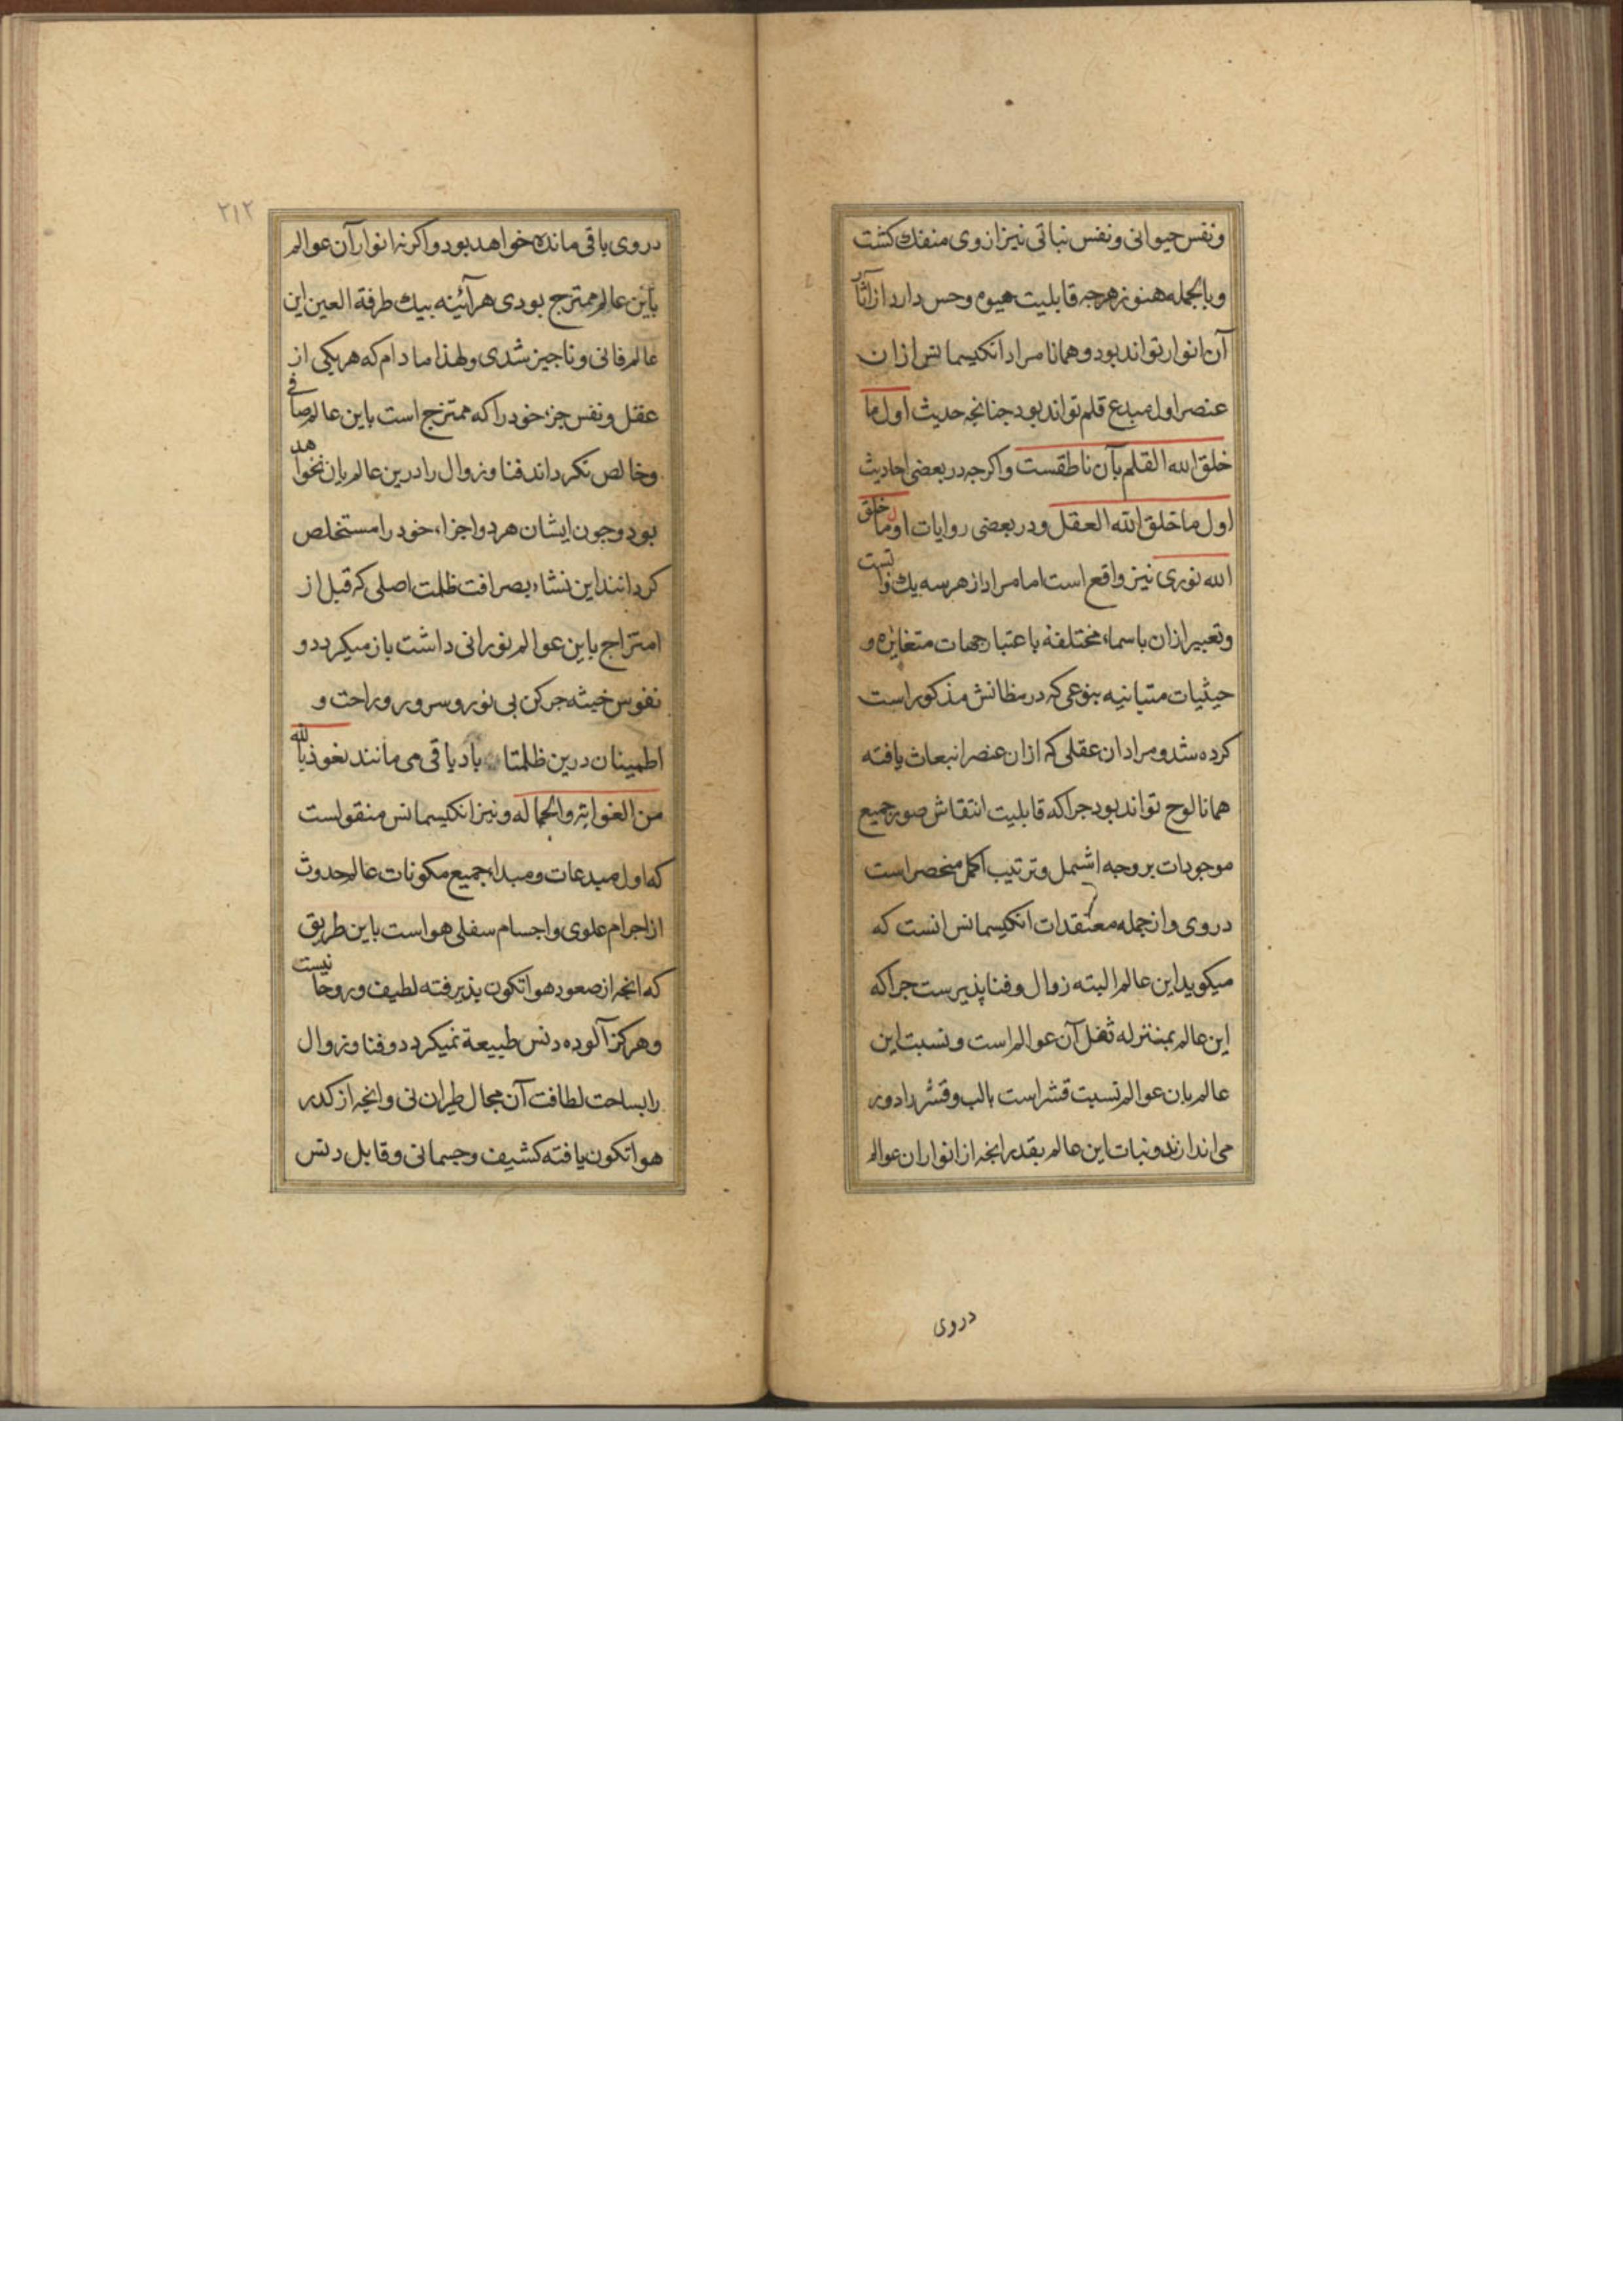 ونفس حیوانی ونفس نباتی نیز از وی منفک کشت
وبالجمله هنوز هرچه قابلیت هیوم وحس دارد از آثار
آن انوار تواند بود و همانا مراد انکیسمانس از ان
عنصر اول مبدع قلم تواند بود جنانجه حدیث اول ما
خلق الله القلم بآن ناطقست واکرجه در بعضی احادیث
اول ما خلق الله العقل ودر بعضی روایات اول ما خلق
الله نوری نیز واقع است اما مراد از هر سه یک ذاتست
وتعبیر ازان باسماء مختلفه باعتبار جهات متغایره و
حیثیات متباینیه بنوعی که در مظانش مذکور است
کرده شد ومراد ان عقلی که ازان عنصر انبعاث یافته
همانا لوح تواند بود جراکه قابلیت انتقاش صور جمیع
موجودات بر وجه اشمل وترتیب اکمل منحصر است
در وی واز جمله معتقدات انکیسمانس انست که
میکوید این عالم البته زوال وفنا پذیرست جراکه
این عالم بمنزله ثفل آن عوالم است ونسبت این
عالم بان عوالم نسبت قشر است بالب وقشر را دور
می اندازند وثبات این عالم بقدر انجه از انوار ان عوالم
دروی
۲۱۲
در وی باقی مانده خواهد بود واکر نه انوار آن عوالم
باین عالم ممتزج بودی هر آئینه بیک طرفة العین این
عالم فانی وناجیز شدی ولهذا مادام که هر یکی از
عقل ونفس جزء خود را که ممتزج است باین عالم صافی
وخالص نکرداند فنا وزوال را درین عالم بان نخواهد
بود وجون ایشان هر دو اجزاء خود را مستخلص
کردانند این نشاء بصرافت ظلمت اصلی که قبل از
امتزاج باین عوالم نورانی داشت باز میکردد و
نفوس خبیثه جرکن بی نور وسرور وراحت و
اطمینان درین ظلمتا باد باقی می مانند نعوذ بالله
من الغوایة والجهاله ونیز انکلیسمانس منقولست
که اول مبدعات ومبداء جمیع مکونات عالم حدوث
از اجرام علوی واجسام سفلی هواست باین طریق
که انجه از صعود هوا تکون پذیرفته لطیف وروحانیست
وهرکز آلوده دنس طبیعة نمیکردد وفنا وزوال
را بساحت لطافت آن مجال طیران نی وانجه از کدر
هوا تکون یافته کثیف وجسمانی وقابل دنس